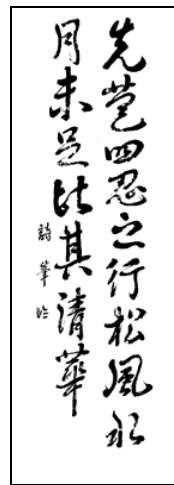 先苞四忍之行松風水
月未足比其清華
詩華